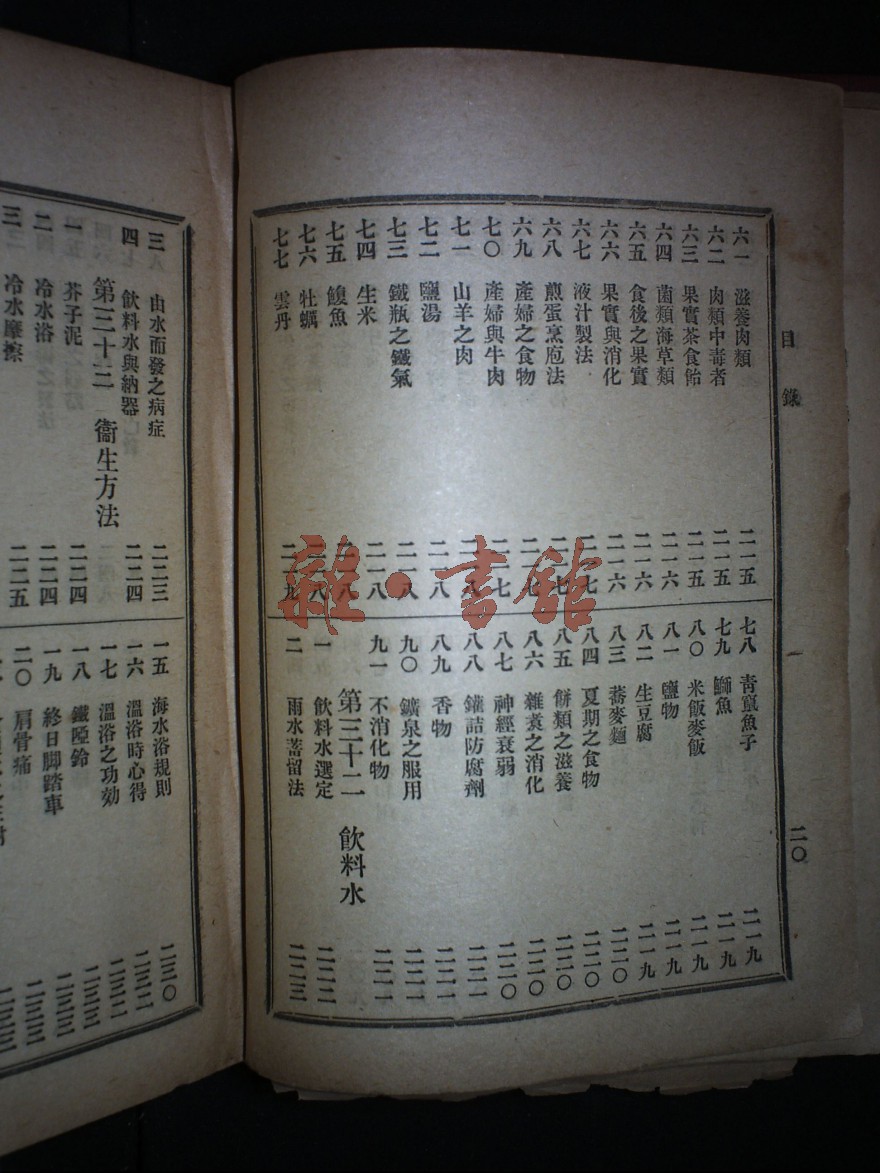 目錄
二〇
六一 滋養肉類 二一五
六二 肉類中毒者 二一五
六三 果實茶食飴 二一五
六四 菌類海草類 二一六
六五 食後之果實 二一六
六六 果實與消化 二一六
六七 液汁製法 二一七
六八 煎蛋烹庖法 二一七
六九 產婦之食物 二一七
七〇 產婦與牛肉 二一七
七一 山羊之肉 二一八
七二 鹽湯 二一八
七三 鐵瓶之鐵氣 二一八
七四 生米 二一八
七五 鰒魚 二一八
七六 牡蠣 二一八
七七 雲丹 二一九
七八 青䱜魚子 二一九
七九 鰤魚 二一九
八〇 米飯麥飯 二一九
八一 鹽物 二一九
八二 生豆腐 二一九
八三 蕎麥麵 二二〇
八四 夏期之食物 二二〇
八五 餅類之滋養 二二〇
八六 雜煑之消化 二二〇
八七 神經衰弱 二二〇
八八 鑵詰防腐劑 二二一
八九 香物 二二一
九〇 鑛泉之服用 二二一
九一 不消化物 二二一
第三十二 飲料水
一 飲料水選定 二二二
二 雨水蓄留法 二二三
三 由水而發之病症 二二三
四 飲料水與納器 二二四
第三十三 衞生方法
一 芥子泥 二二四
二 冷水浴 二二四
三 冷水摩擦 二二五
一五 海水浴規則 二三〇
一六 溫浴時心得
一七 溫浴之功効
一八 鐵啞鈴
一九 終日脚踏車
二〇 肩骨痛
雜·書館